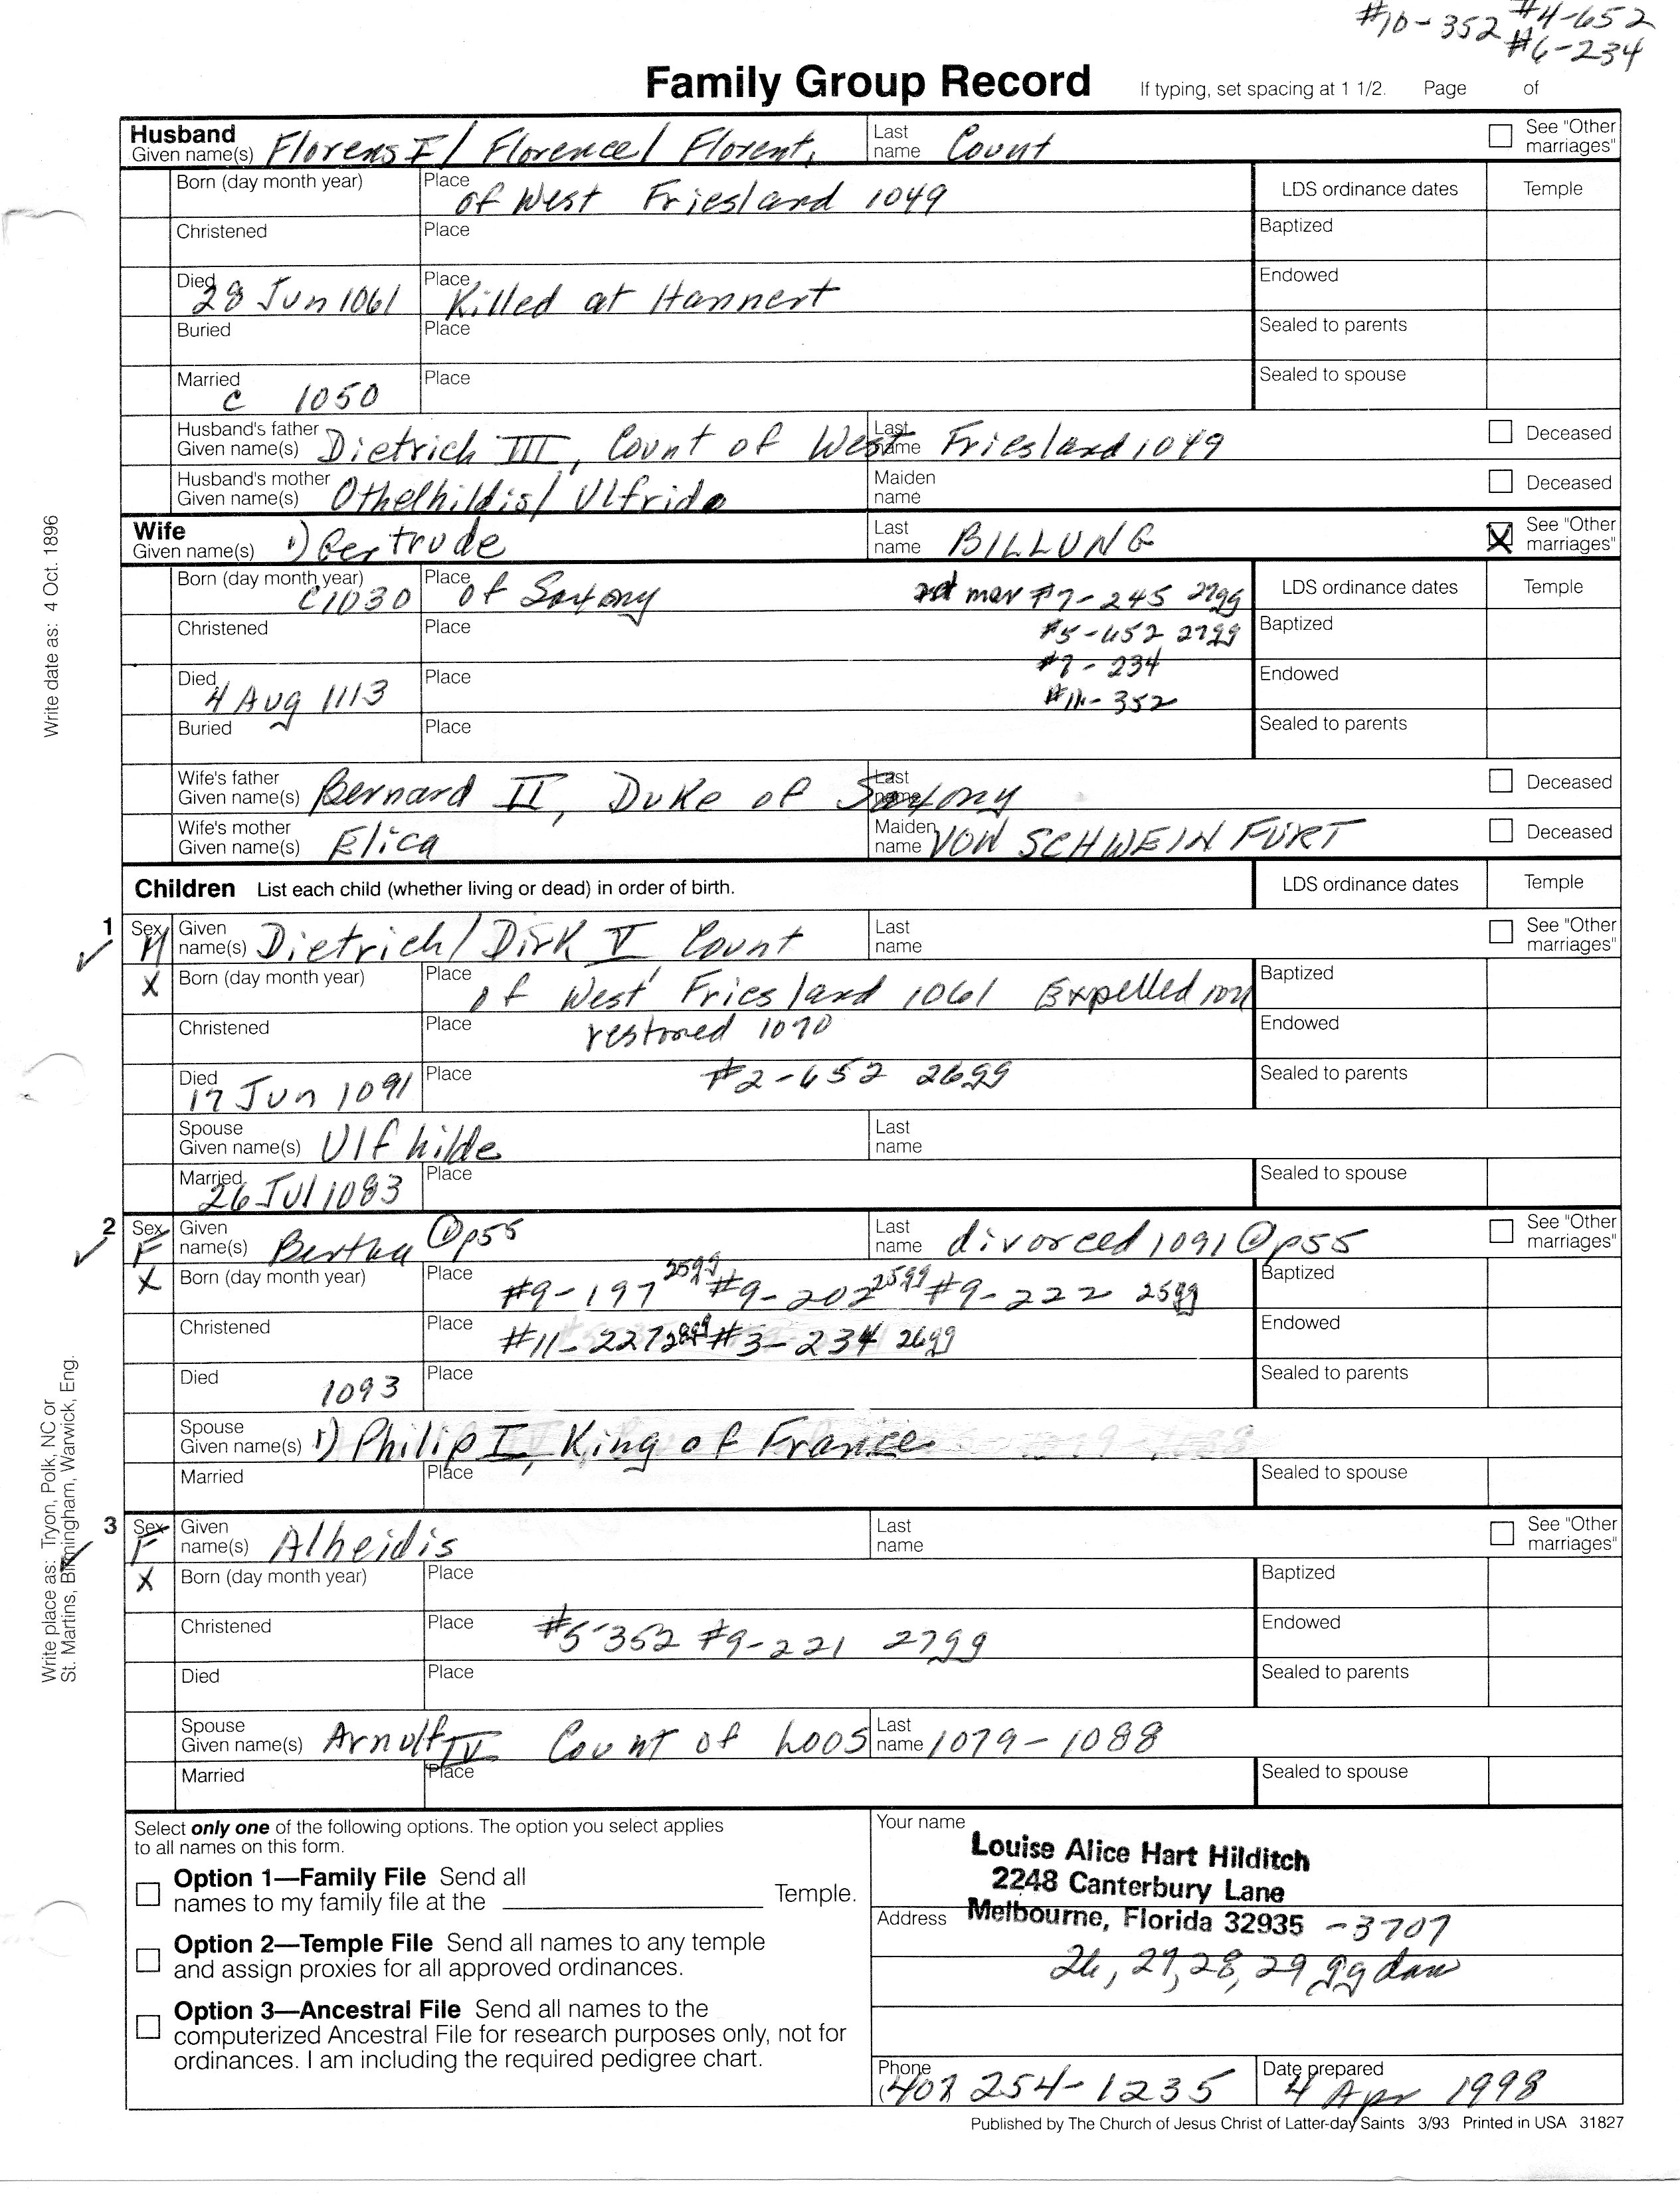 #10-352 #4-652
#6-234
Family Group Record If typing, set spacing at 1 1/2. Page of
Husband
Given name(s) Florens I / Florence / Florent, Last name Count See "Other marriages"
Born (day month year) Place of West Friesland 1049 LDS ordinance dates Temple
Christened Place Baptized
Died 28 Jun 1061 Place Killed at Hannert Endowed
Buried Place Sealed to parents
Married c 1050 Place Sealed to spouse
Husband's father Given name(s) Dietrich III, Count of West Friesland 1049 Last name Deceased
Husband's mother Given name(s) Othelhildis / Ulfrida Maiden name Deceased
Wife
Given name(s) 1) Gertrude Last name BILLUNG X See "Other marriages"
Born (day month year) c1030 Place of Saxony 2nd mar #7-245 27gg LDS ordinance dates Temple
Christened Place #5-652 27gg Baptized
#7-234
Died 4 Aug 1113 Place #11-352 Endowed
Buried Place Sealed to parents
Wife's father Given name(s) Bernard II, Duke of Saxony Last name Deceased
Wife's mother Given name(s) Elica Maiden name VON SCHWEINFURT Deceased
Children List each child (whether living or dead) in order of birth. LDS ordinance dates Temple
1 Sex M Given name(s) Dietrich / Dirk V Count Last name See "Other marriages"
X Born (day month year) Place of West Friesland 1061 Expelled Baptized
Christened Place restored 1070 Endowed
Died 17 Jun 1091 Place #2-652 26gg Sealed to parents
Spouse Given name(s) Ulfhilde Last name
Married 26 Jul 1083 Place Sealed to spouse
2 Sex F Given name(s) Bertha @p55 Last name divorced 1091 @p55 See "Other marriages"
X Born (day month year) Place #9-197 25gg #9-202 25gg #9-222 25gg Baptized
Christened Place #11-227 28gg #3-234 26gg Endowed
Died 1093 Place Sealed to parents
Spouse Given name(s) 1) Philip I, King of France
Married Place Sealed to spouse
3 Sex F Given name(s) Alheidis Last name See "Other marriages"
X Born (day month year) Place Baptized
Christened Place #5-352 #9-221 27gg Endowed
Died Place Sealed to parents
Spouse Given name(s) Arnulf IV Count of Loos Last name 1079-1088
Married Place Sealed to spouse
Select only one of the following options. The option you select applies
to all names on this form.
Option 1—Family File Send all
names to my family file at the Temple.
Option 2—Temple File Send all names to any temple
and assign proxies for all approved ordinances.
Option 3—Ancestral File Send all names to the
computerized Ancestral File for research purposes only, not for
ordinances. I am including the required pedigree chart.
Your name
Louise Alice Hart Hilditch
2248 Canterbury Lane
Address Melbourne, Florida 32935 -3707
26, 27, 28, 29 gg dau
Phone (407 254-1235 Date prepared 4 Apr 1998
Published by The Church of Jesus Christ of Latter-day Saints 3/93 Printed in USA 31827
Write date as: 4 Oct. 1896
Write place as: Tryon, Polk, NC or
St. Martins, Birmingham, Warwick, Eng.